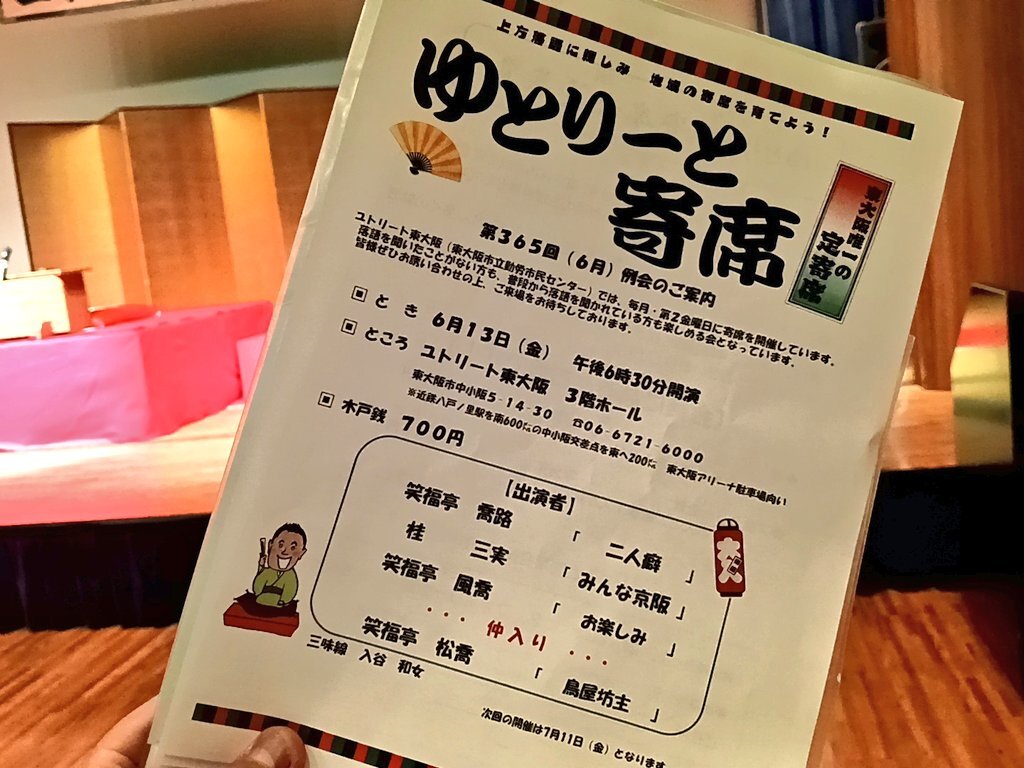 上方落語に親しみ 地域の寄席を育てよう!
ゆとりーと
寄席
東大阪唯一の
定寄席
第365回(6月)例会のご案内
ユトリート東大阪(東大阪市立勤労市民センター)では、毎月・第2金曜日に寄席を開催しています。
落語を聞いたことがない方も、普段から落語を聞かれている方も楽しめる会となっています。
皆様ぜひお誘い合わせの上、ご来場をお待ちしております。
▣ とき 6月13日(金) 午後6時30分開演
▣ ところ ユトリート東大阪 3階ホール
東大阪市中小阪5-14-30 ☎06-6721-6000
※近鉄八戸ノ里駅を南600㍍の中小阪交差点を東へ200㍍ 東大阪アリーナ駐車場向い
▣ 木戸銭 700円
【出演者】
笑福亭 喬路 「 二人癖 」
桂 三実 「 みんな京阪 」
笑福亭 風喬 「 お楽しみ 」
・・ 仲入り ・・・
笑福亭 松喬 「 鳥屋坊主 」
三味線 入谷 和女
次回の開催は7月11日(金)となります